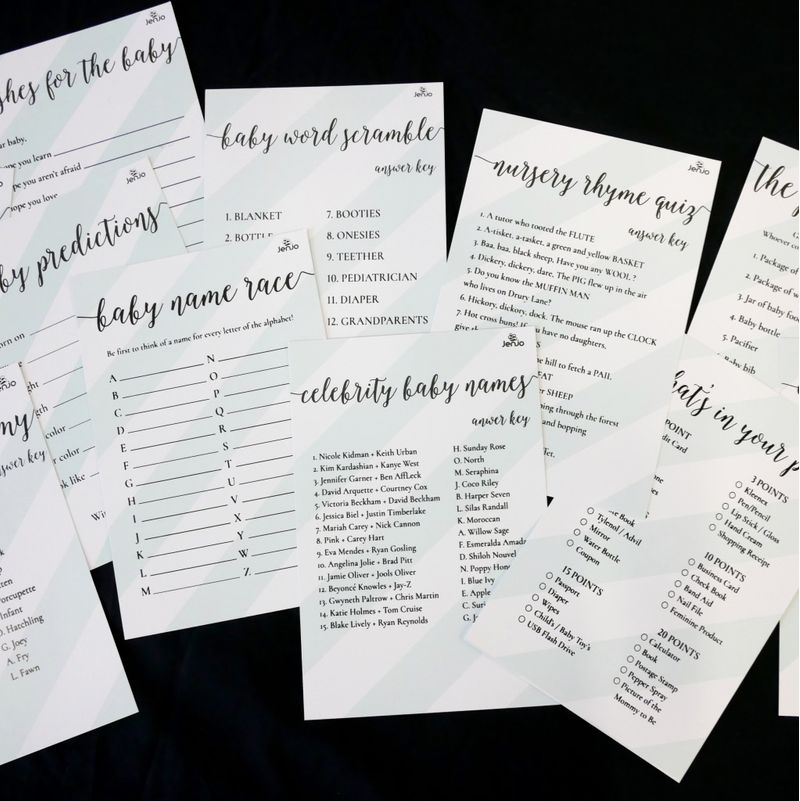 Jenjo
for the baby
baby,
you learn
you aren't afraid
ope you love
Jenjo
by predictions
orn on
color
color
Jenjo
answer key
Porcupette
Infant
D. Hatchling
G. Joey
A. Fry
L. Fawn
Jenjo
baby name race
Be first to think of a name for every letter of the alphabet!
A N
B O
C P
D Q
E R
F S
G T
H U
I V
J X
K Y
L W
M Z
Jenjo
baby word scramble
answer key
1. BLANKET
2. BOTTLE
7. BOOTIES
8. ONESIES
9. TEETHER
10. PEDIATRICIAN
11. DIAPER
12. GRANDPARENTS
Jenjo
celebrity baby names
anwer key
1. Nicole Kidman + Keith Urban
2. Kim Kardashian + Kanye West
3. Jennifer Garner + Ben AffLeck
4. David Arquette + Courtney Cox
5. Victoria Beckham + David Beckham
6. Jessica Biel + Justin Timberlake
7. Mariah Carey + Nick Cannon
8. Pink + Carey Hart
9. Eva Mendes + Ryan Gosling
10. Angelina Jolie + Brad Pitt
11. Jamie Oliver + Jools Oliver
12. Beyoncé Knowles + Jay-Z
13. Gwyneth Paltrow + Chris Martin
14. Katie Holmes + Tom Cruise
15. Blake Lively + Ryan Reynolds
H. Sunday Rose
O. North
M. Seraphina
J. Coco Riley
B. Harper Seven
L. Silas Randall
K. Moroccan
A. Willow Sage
F. Esmeralda Amada
D. Shiloh Nouvel
N. Poppy Hone
I. Blue Ivy
E. Apple
C. Suri
G. J
Jenjo
nursery rhyme quiz
answer key
1. A tutor who tooted the FLUTE
2. A-tisket, a-tasket, a green and yellow BASKET
3. Baa, baa, black sheep. Have you any WOOL ?
4. Dickery, dickery, dare. The PIG flew up in the air
5. Do you know the MUFFIN MAN
who lives on Drury Lane?
6. Hickory, dickory, dock. The mouse ran up the CLOCK
7. Hot cross buns! If you have no daughters.
give th
he hill to fetch a PAIL
EAT
er SHEEP
pping through the forest
and bopping
the
1. Package of
2. Package of w
3. Jar of baby foo
4. Baby bottle
5. Pacifier
6. Baby bib
hat's in your p
POINT
dit Card
Book
Tylenol / Advil
Mirror
Water Bottle
Coupon
15 POINTS
Passport
Diaper
Wipes
Child's / Baby Toy's
USB Flash Drive
3 POINTS
Kleenex
Pen/Pencil
Lip Stick / Gloss
Hand Cream
Shopping Receipt
10 POINTS
Business Card
Check Book
Band Aid
Nail File
Feminine Product
20 POINTS
Calculator
Book
Postage Stamp
Pepper Spray
Picture of the
Mommy to Be